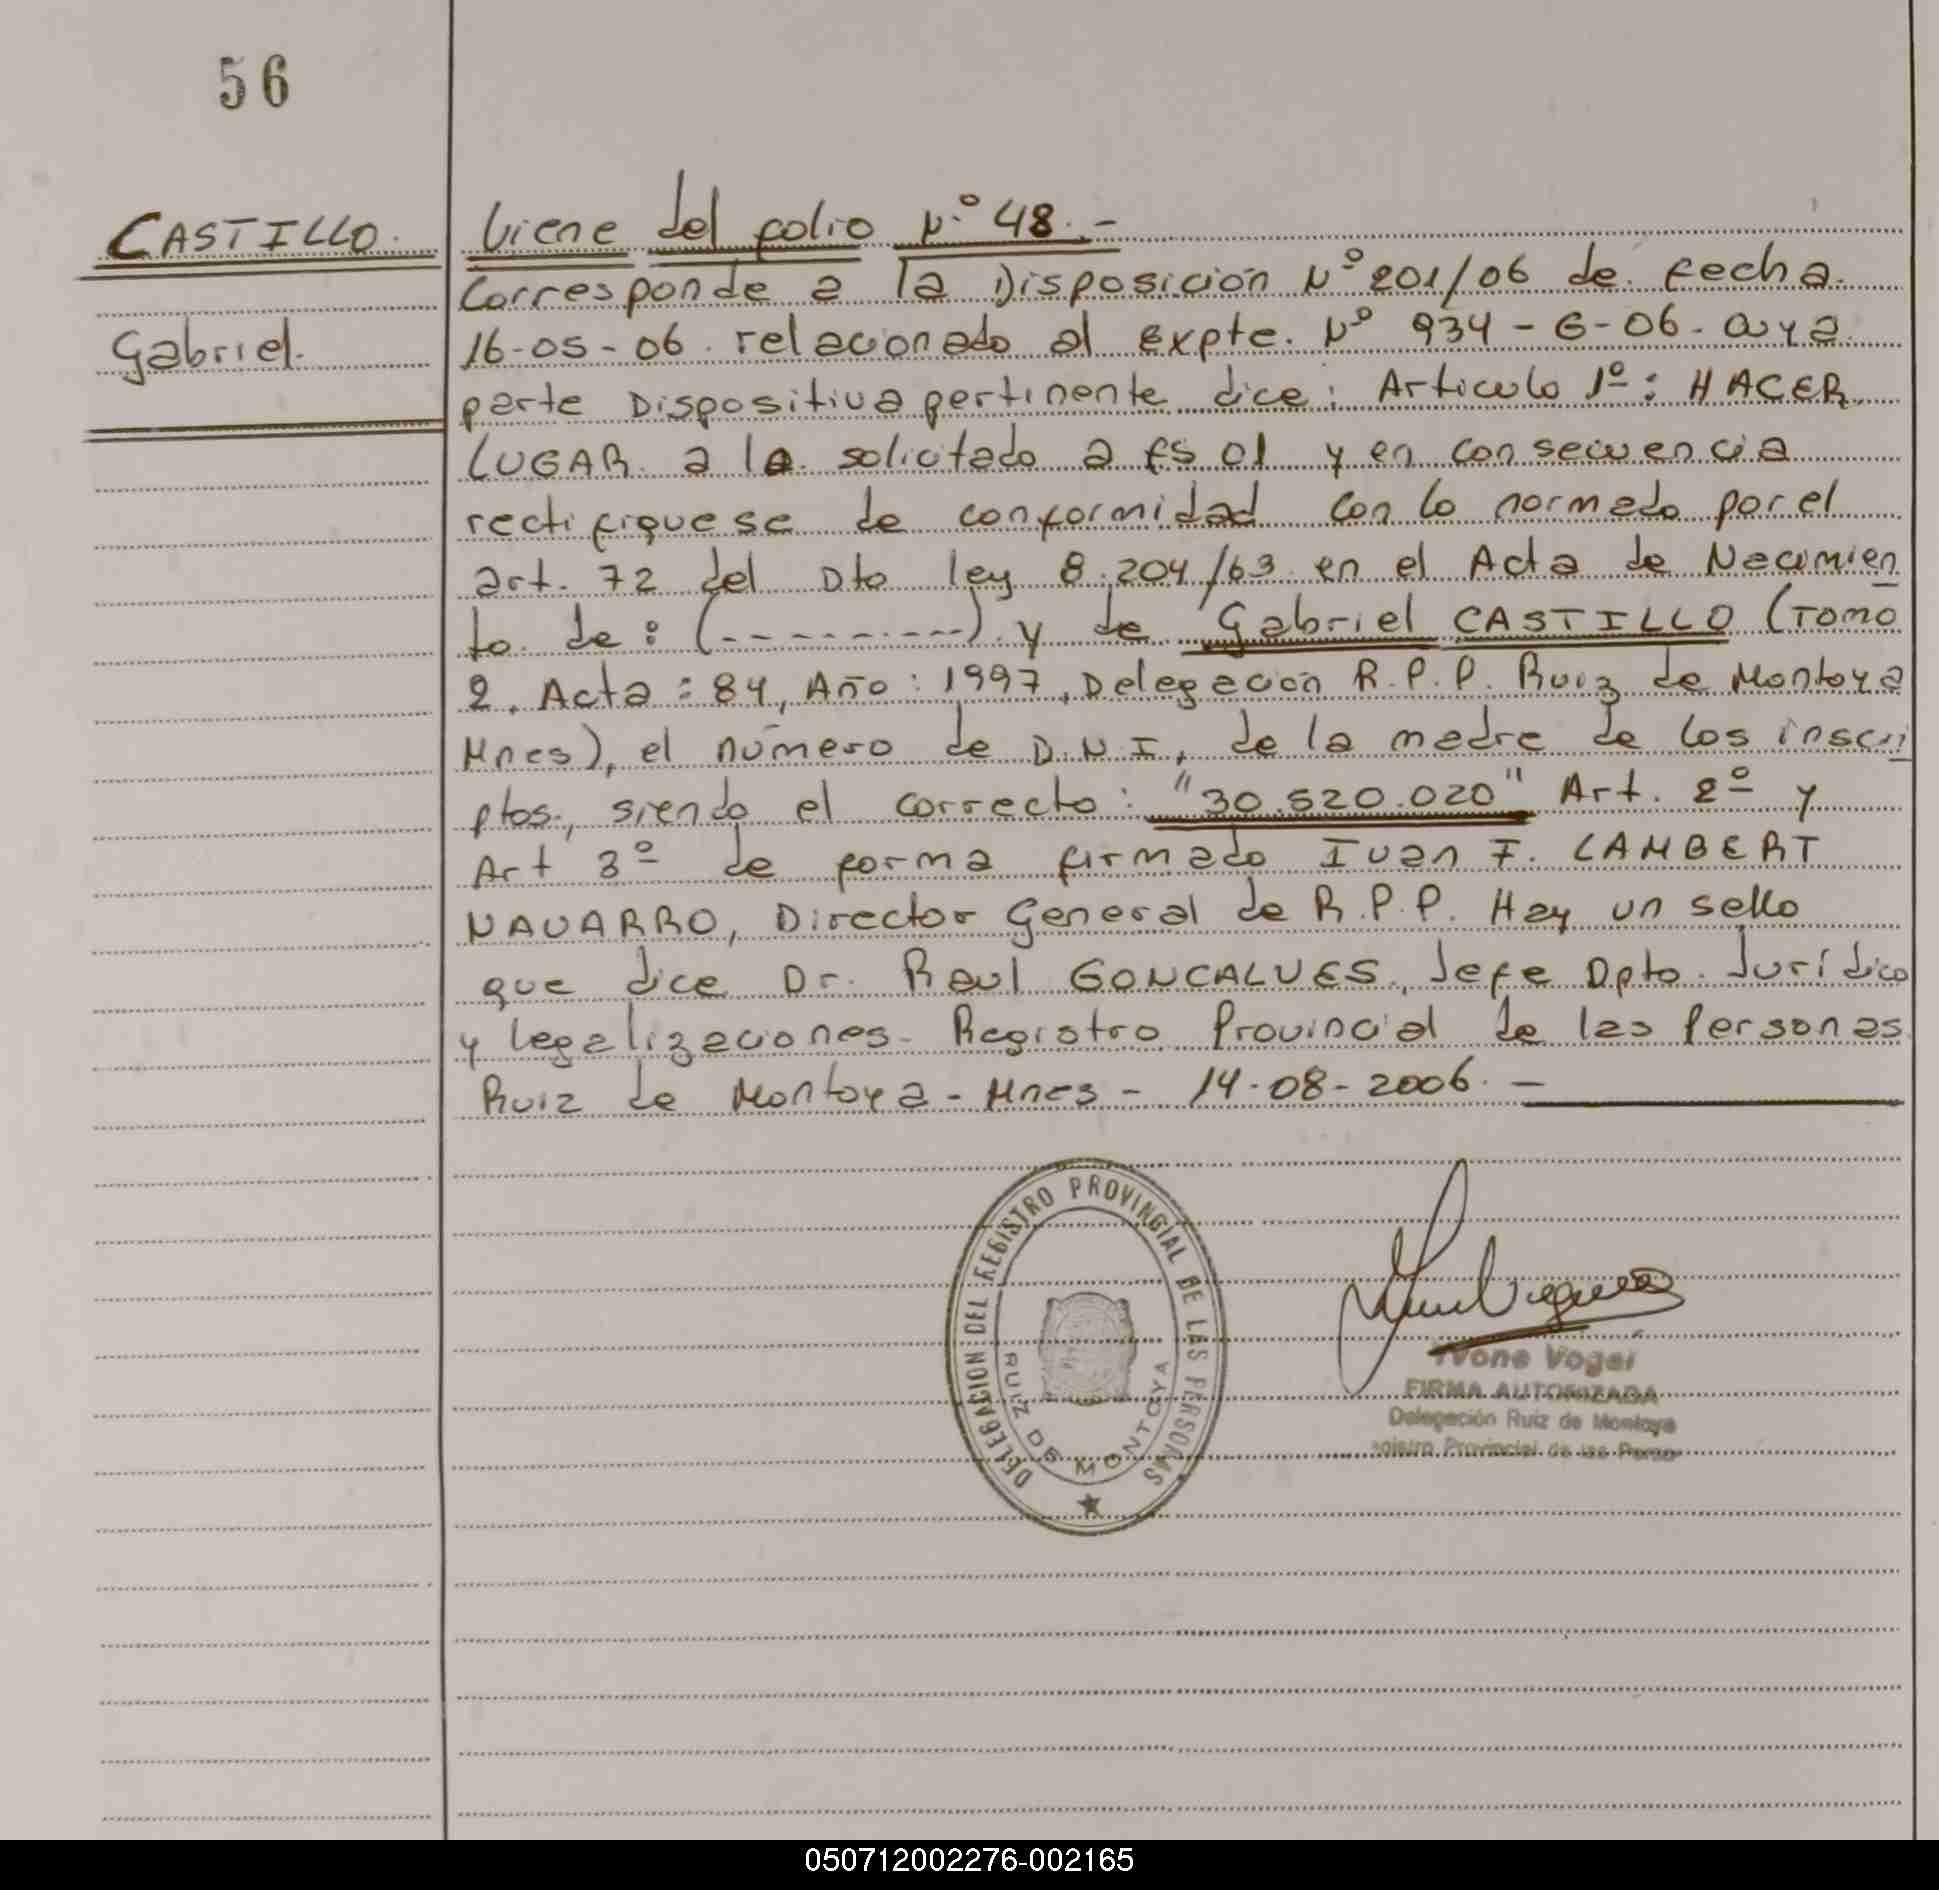 56
CASTILLO.
Gabriel.
Viene del folio Nº 48.-
Corresponde a la Disposición Nº 201/06 de fecha
16-05-06 relacionado al expte. Nº 934-G-06- cuya
parte Dispositiva pertinente dice: Articulo 1º: HACER
LUGAR a lo solicitado a fs 01 y en consecuencia
rectifiquese de conformidad con lo normado por el
art. 72 del Dto ley 8.204/63 en el Acta de Nacimien
to de: (----------) y de Gabriel CASTILLO (Tomo
2, Acta: 84, Año: 1997, Delegación R.P.P. Ruiz de Montoya
Mnes), el número de D.N.I, de la madre de los inscri
ptos, siendo el correcto: "30.520.020" Art. 2º y
Art 3º de forma firmado Ivan F. LAMBERT
NAVARRO, Director General de R.P.P. Hay un sello
que dice Dr. Raul GONCALVES, Jefe Dpto. Jurídico
y legalizaciones- Registro Provincial de las Personas
Ruiz de Montoya - Mnes - 14-08-2006.-
DELEGACION DEL REGISTRO PROVINCIAL DE LAS PERSONAS
RUIZ DE MONTOYA
Ivone Vogel
FIRMA AUTORIZADA
Delegación Ruiz de Montoya
Provincial de las
050712002276-002165